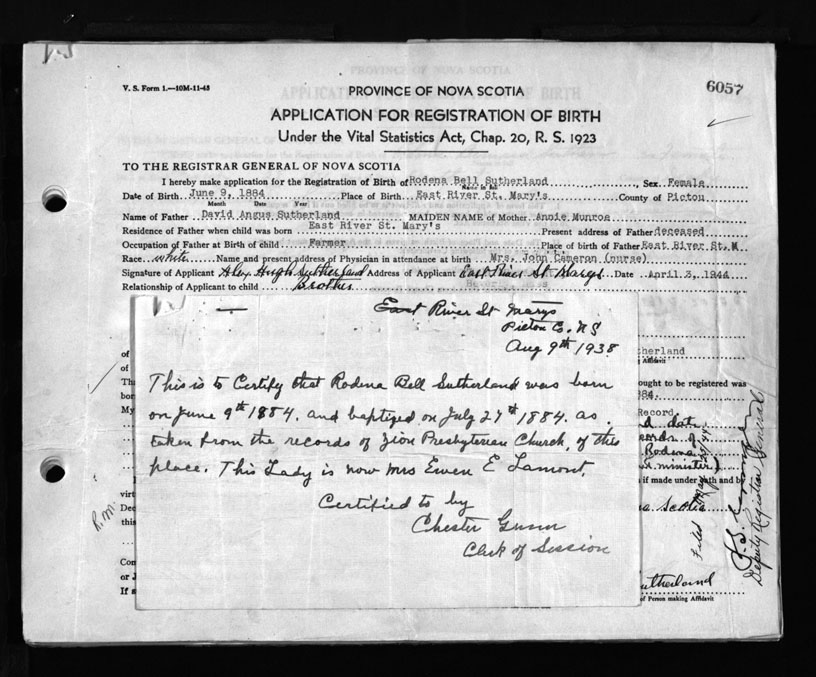 V. S. Form 1.—10M-11-43
PROVINCE OF NOVA SCOTIA
6057
APPLICATION FOR REGISTRATION OF BIRTH
Under the Vital Statistics Act, Chap. 20, R. S. 1923
TO THE REGISTRAR GENERAL OF NOVA SCOTIA
I hereby make application for the Registration of Birth of Rodena Bell Sutherland, Sex Female
Name in full
Date of Birth June 9, 1884 Place of Birth East River St. Mary's County of Pictou
Month Date Year
Name of Father David Angus Sutherland MAIDEN NAME of Mother Annie Munroe
Residence of Father when child was born East River St. Mary's Present address of Father deceased
Occupation of Father at Birth of child Farmer Place of birth of Father East River St. M
Race white Name and present address of Physician in attendance at birth Mrs. John Cameron (nurse)
Signature of Applicant Alex Hugh Sutherland Address of Applicant East River St Marys Date April 3, 1944
Relationship of Applicant to child Brother
East River St Marys
Pictou Co. N S
Aug 9th 1938
This is to Certify that Rodena Bell Sutherland was born
on June 9th 1884. and baptized on July 27th 1884. as
taken from the records of Zion Presbyterian Church, of this
place. This Lady is now Mrs Ewen E Lamont.
Certified to by
Chester Gunn
Clerk of Session
of
of
bor
My
R.M.
virt
Dec
this
Con
or J
If a
therland
Affidavit
ought to be registered was
884.
Record
d date
cords of
Rodena
minister)
if made under oath and by
Scotia
Sutherland
of Person making Affidavit
Filed May 23/44
Deputy Registrar General